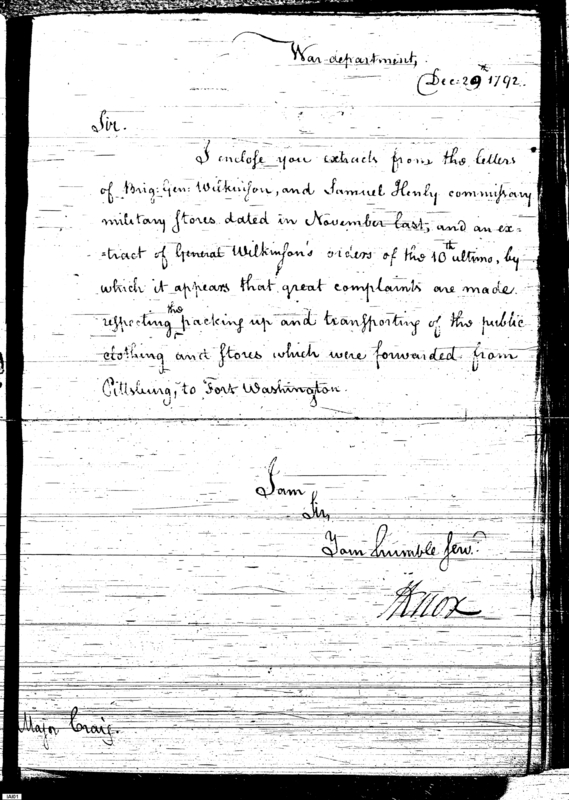 War department,
Dec: 29th 1792.
Sir.
I enclose you extracts from the letters
of Brig: Gen: Wilkinson, and Samuel Henly commissary
military stores dated in November last, and an ex-
-tract of General Wilkinson's orders of the 10th ultimo, by
which it appears that great complaints are made
respecting the packing up and transporting of the public
clothing and stores which were forwarded from
Pittsburg, to Fort Washington.
I am
Sir,
Your humble Serv.t
HKnox
Major Craig.